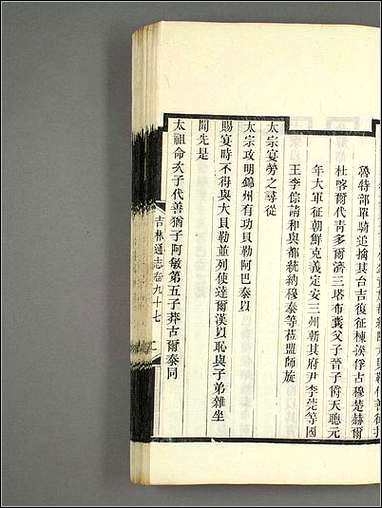 魯特部單騎追擒其台吉復征棟
杜喀爾代青多爾濟三塔布囊父子晉子爵天聰元
年大軍征朝鮮克義定安三州斬其府尹李莞等國
王李倧請和與都統納穆泰等蒞盟師旋
太宗宴勞之尋從
太宗攻明錦州有功貝勒阿巴泰以
賜宴時不得與大貝勒並列使達爾漢以恥與子弟雜坐
聞先是
太祖命次子代善猶子阿敏第五子莽古爾泰同
吉林通志卷九十七